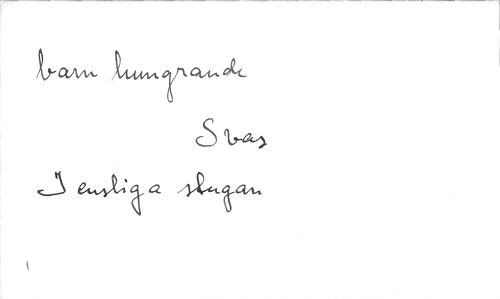 barn hungrande
Svas
I ensliga stugan